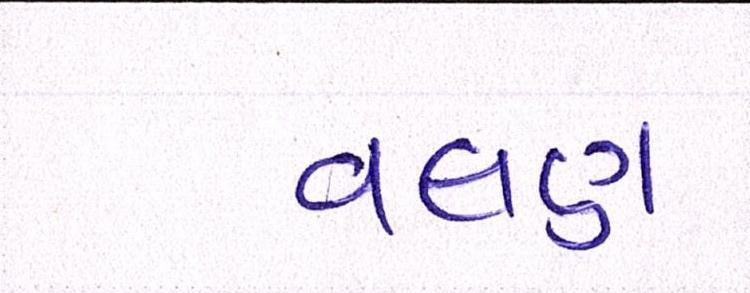 વલણ